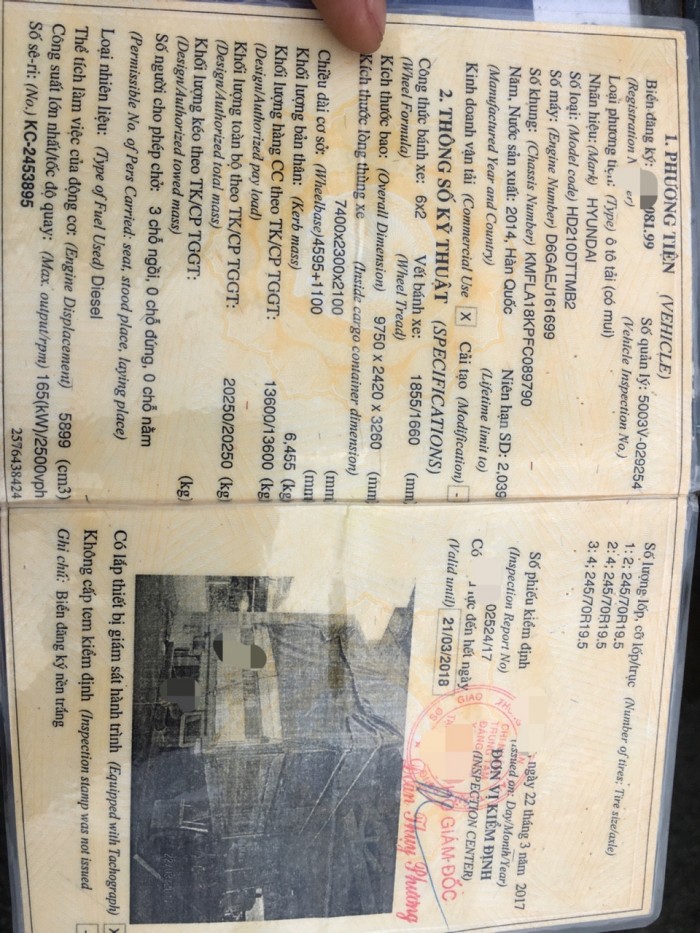 1. PHƯƠNG TIỆN (VEHICLE)
Biển đăng ký: 081.99 Số quản lý: 5003V-029254
(Registration N er) (Vehicle Inspection No.)
Loại phương tiện: (Type) ô tô tải (có mui)
Nhãn hiệu: (Mark) HYUNDAI
Số loại: (Model code) HD210DTTMB2
Số máy: (Engine Number) D6GAEJ161699
Số khung: (Chassis Number) KMFLA18KPFC089790
Năm, Nước sản xuất: 2014, Hàn Quốc Niên hạn SD: 2.039
(Manufactured Year and Country) (Lifetime limit to)
Kinh doanh vận tải (Commercial Use) X Cải tạo (Modification) -
2. THÔNG SỐ KỸ THUẬT (SPECIFICATIONS)
Công thức bánh xe: 6x2 Vết bánh xe: 1855/1660 (mm)
(Wheel Formula) (Wheel Tread)
Kích thước bao: (Overall Dimension) 9750 x 2420 x 3260 (mm)
Kích thước lòng thùng xe (Inside cargo container dimension)
7400x2300x2100 (mm
Chiều dài cơ sở: (Wheelbase) 4595+1100 (mm
Khối lượng bản thân: (Kerb mass) 6,455 (kg
Khối lượng hàng CC theo TK/CP TGGT: 13600/13600 (kg
(Design/Authorized pay load)
Khối lượng toàn bộ theo TK/CP TGGT: 20250/20250 (kg)
(Design/Authorized total mass)
Khối lượng kéo theo TK/CP TGGT: - (kg)
(Design/Authorized towed mass)
Số người cho phép chở: 3 chỗ ngồi, 0 chỗ đứng, 0 chỗ nằm
(Permissible No. of Pers Carried: seat, stood place, laying place)
Loại nhiên liệu: (Type of Fuel Used) Diesel
Thể tích làm việc của động cơ: (Engine Displacement) 5899 (cm3)
Công suất lớn nhất/tốc độ quay: (Max. ouput/rpm) 165(kW)/2500vph
Số sê-ri: (No.) KC-2453895 2576438424
Số lượng lốp, cỡ lốp/trục (Number of tires; Tire size/axle)
1: 2; 245/70R19.5
2: 4; 245/70R19.5
3: 4; 245/70R19.5
ngày 22 tháng 3 năm 2017
Số phiếu kiểm định Issued on: Day/Month/Year)
(Inspection Report No) ĐƠN VỊ KIỂM ĐỊNH
02524/17 (INSPECTION CENTER)
Có lực đến hết ngày
(Valid until) 21/03/2018
GIÁM ĐỐC
Phương
Có lắp thiết bị giám sát hành trình (Equipped with Tachograph) X
Không cấp tem kiểm định (Inspection stamp was not issued -
Ghi chú: Biển đăng ký nền trắng